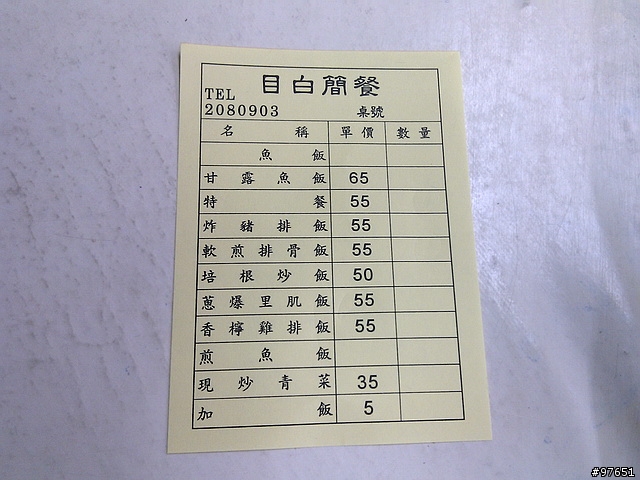 目白簡餐
TEL
2080903 桌號
名稱 單價 數量
魚飯
甘露魚飯 65
特餐 55
炸豬排飯 55
軟煎排骨飯 55
培根炒飯 50
蔥爆里肌飯 55
香檸雞排飯 55
煎魚飯
現炒青菜 35
加飯 5
#97651